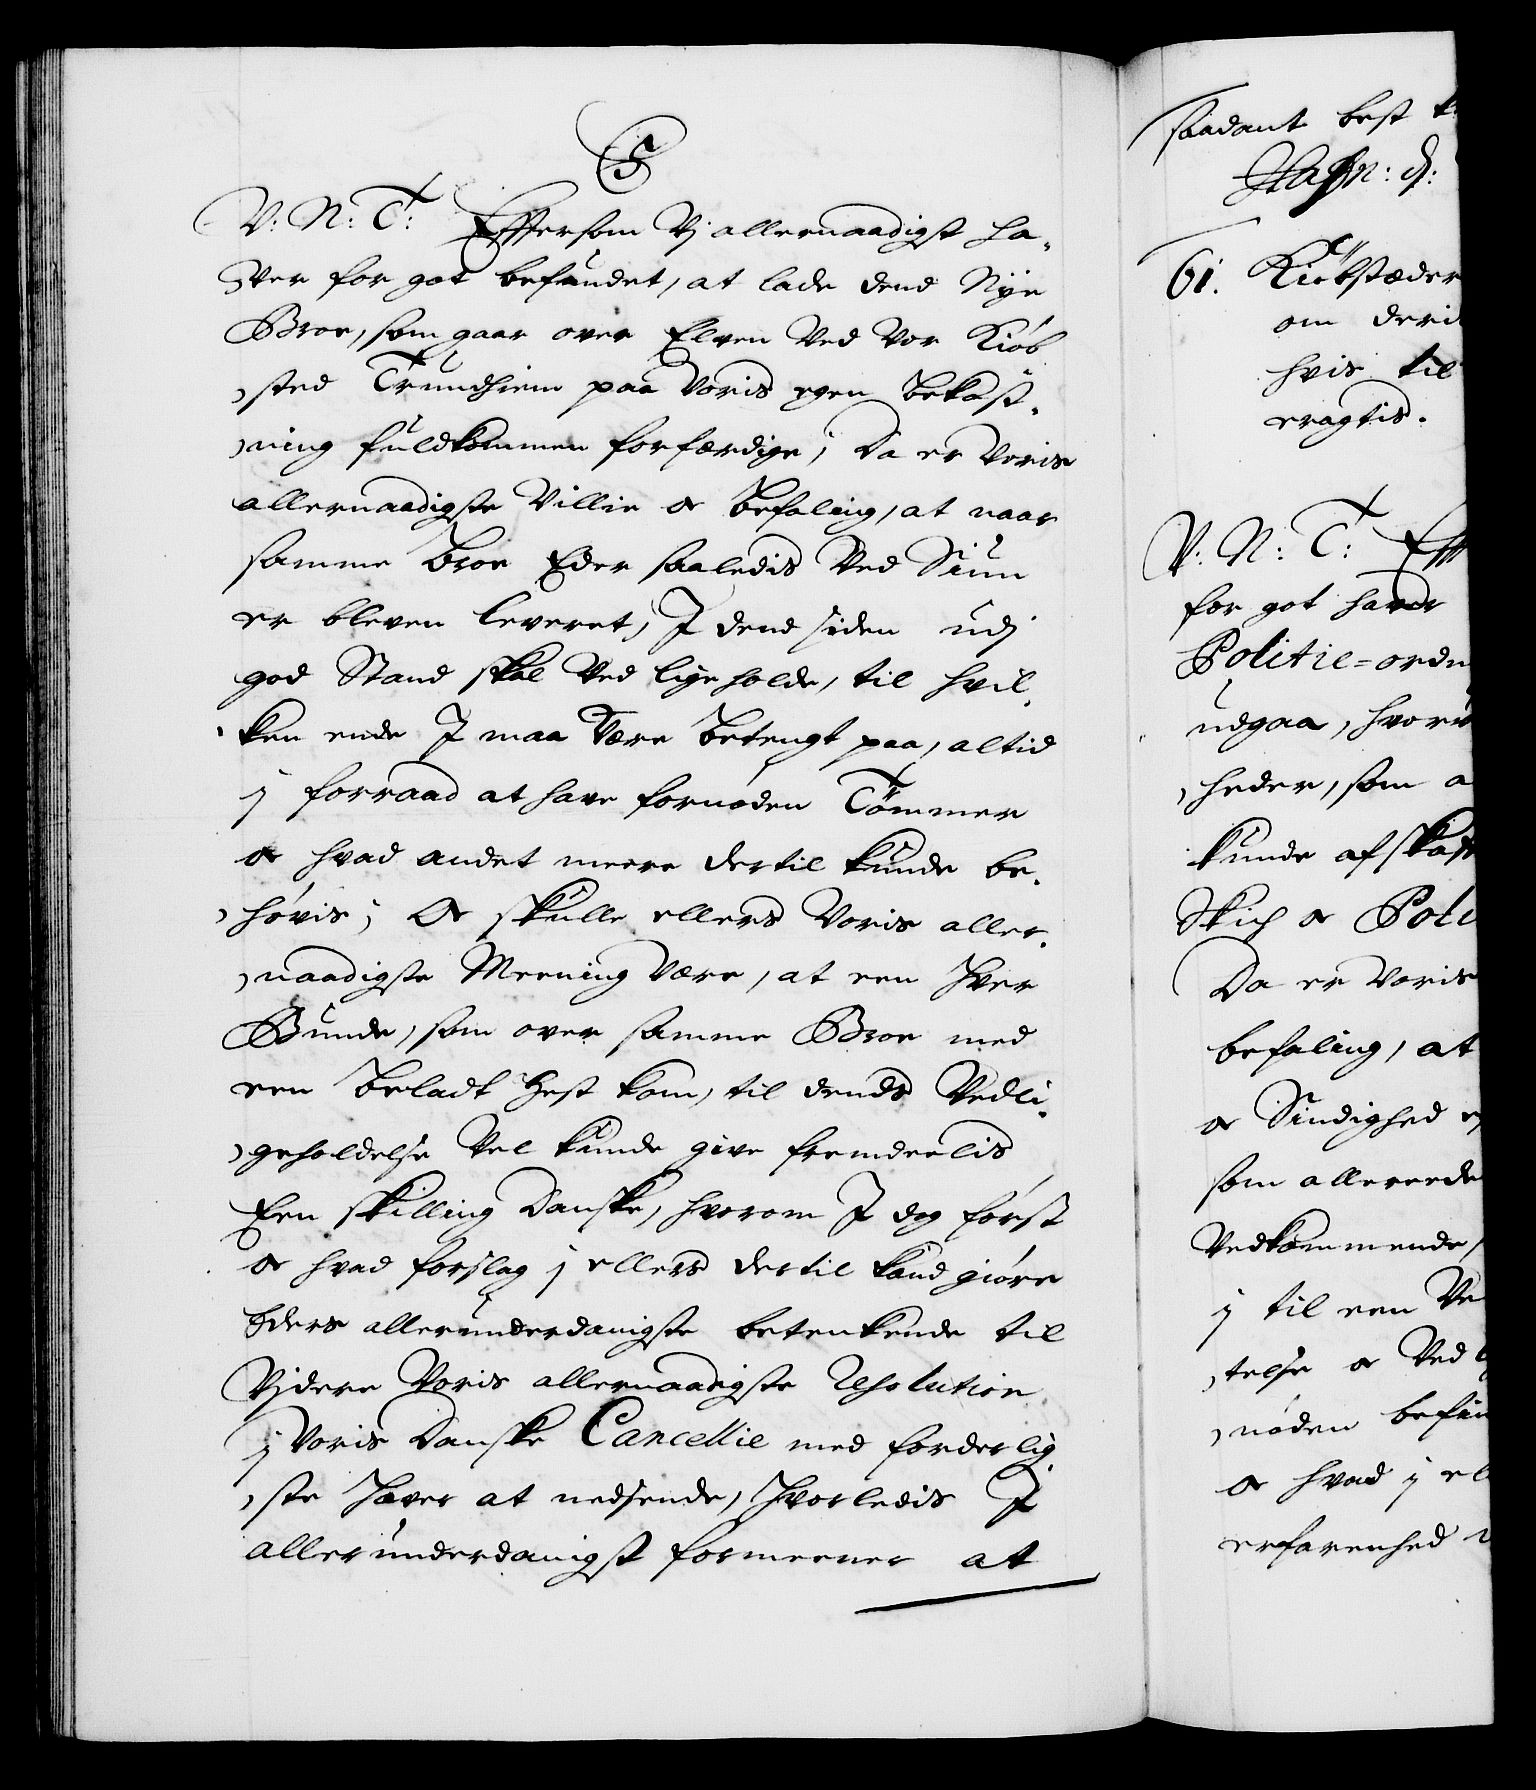 C5
V: N: T: Eftersom Vj allernaadigst ha-
Ver for got befundet, at lade dend Nye
Broe, som gaar over Elven Ved Vor Kiøb
sted Trundhiem paa Voris egen bekost-
ning fuldkommen forfærdige; Da er Voris
allernaadigste Villie oc befaling, at naar
samme broe Eder saaledis Ved Siun
er bleven leveret, I dend siden udj
god Stand skal Ved lige holde, til hvil-
ken ende I maa Være betengt paa, altid
j forraad at have fornøden Tømmer
oc hvad andet meere dertil kunde be-
høvis; Oc skulle ellers Voris aller-
naadigste Meening være, at een hver
Bunde, som over samme Broe med
een beladt hest kom, til dends Vedli-
geholdelse Vel kunde give fremdeelis
Een skilling Danske, hvorom I dog først
oc hvad forslag j ellers dertil kand giøre
Eders allerunderdanigste betenkende til
Vjdere Voris allernaadigste Resolution
j Voris Danske Cancellie med forderlig-
ste haver at nedsende, hvorledis I
allerunderdanigst formeener at
saadant best
Hafn: d:
61. Kiøbstæder
om deri
hvis til
eragtis.
V: N: T: Eff
for got haver
Politie=ordn
udgaa, hvor
heder, som a
kunde afskaf
Skich oc Poli
Da er Voris
befaling, at
oc Sindighed
som allereede
Vedkommende,
j til een Ve
telse oc Ved
nøden befin
oc hvad j el
erfarenhed